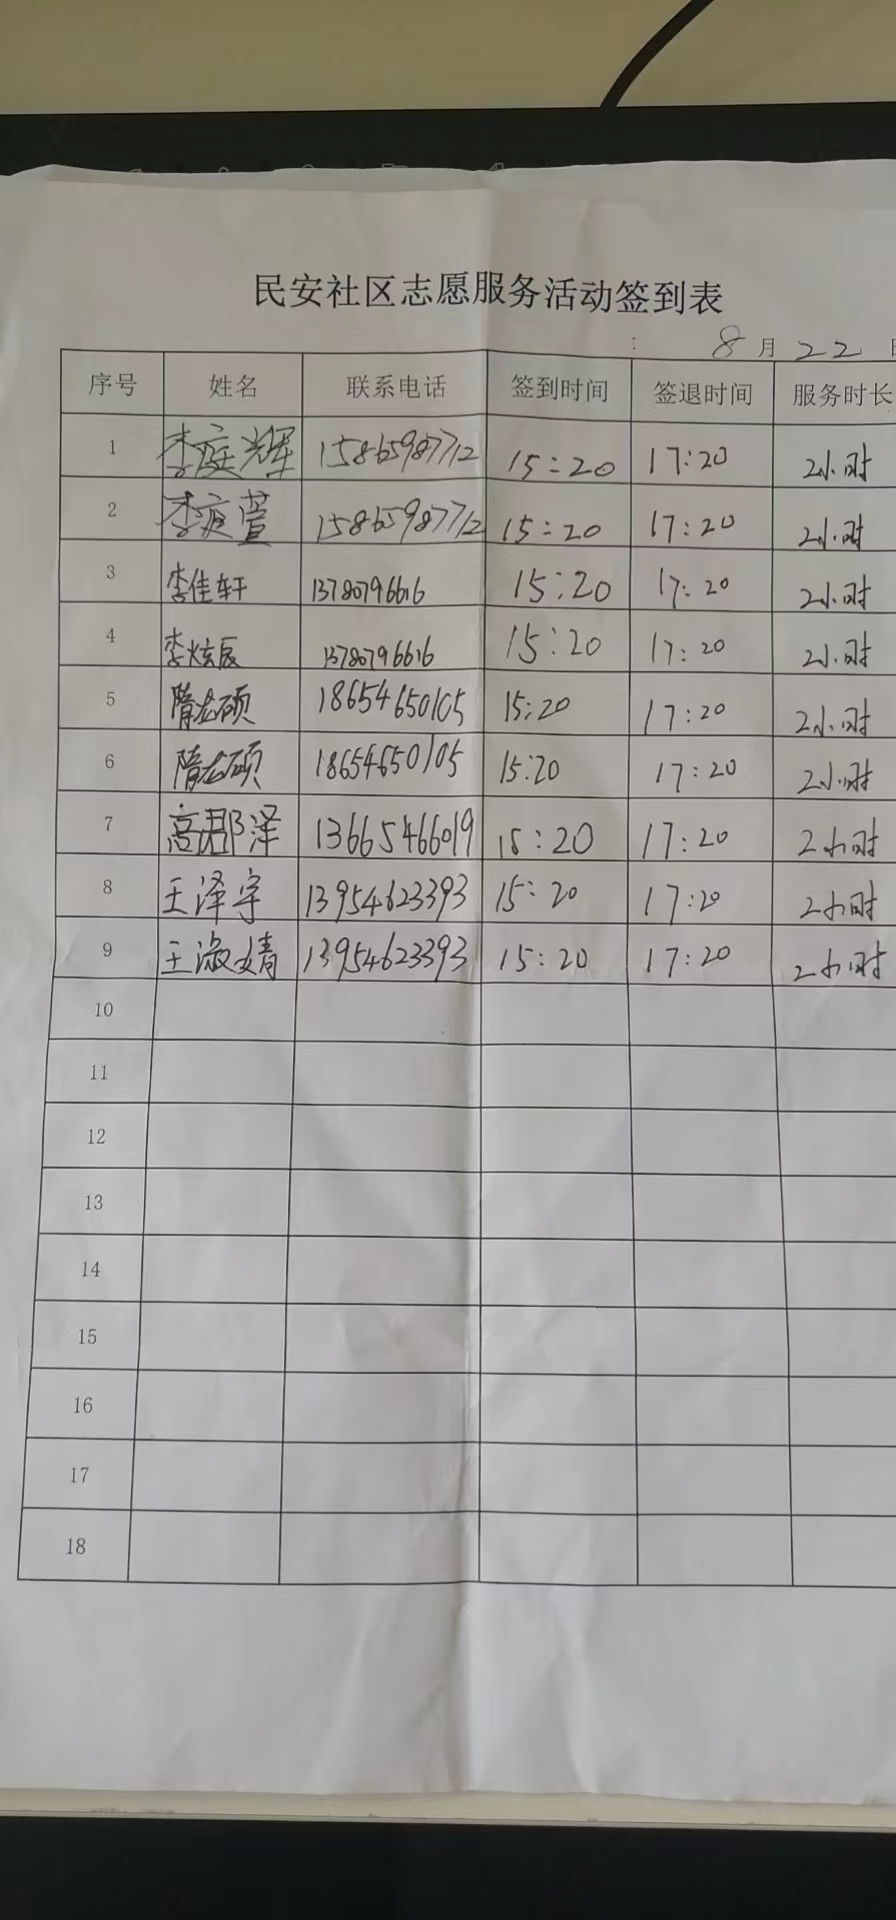 民安社区志愿服务活动签到表
: 8月22日
序号 姓名 联系电话 签到时间 签退时间 服务时长
1 李庭辉 15865987712 15:20 17:20 2小时
2 李庭萱 15865987712 15:20 17:20 2小时
3 李佳轩 13780796616 15:20 17:20 2小时
4 李炫辰 13780796616 15:20 17:20 2小时
5 隋龙硕 18654650105 15:20 17:20 2小时
6 隋龙硕 18654650105 15:20 17:20 2小时
7 高郡泽 13665466019 15:20 17:20 2小时
8 王泽宇 13954623393 15:20 17:20 2小时
9 王淑婧 13954623393 15:20 17:20 2小时
10
11
12
13
14
15
16
17
18